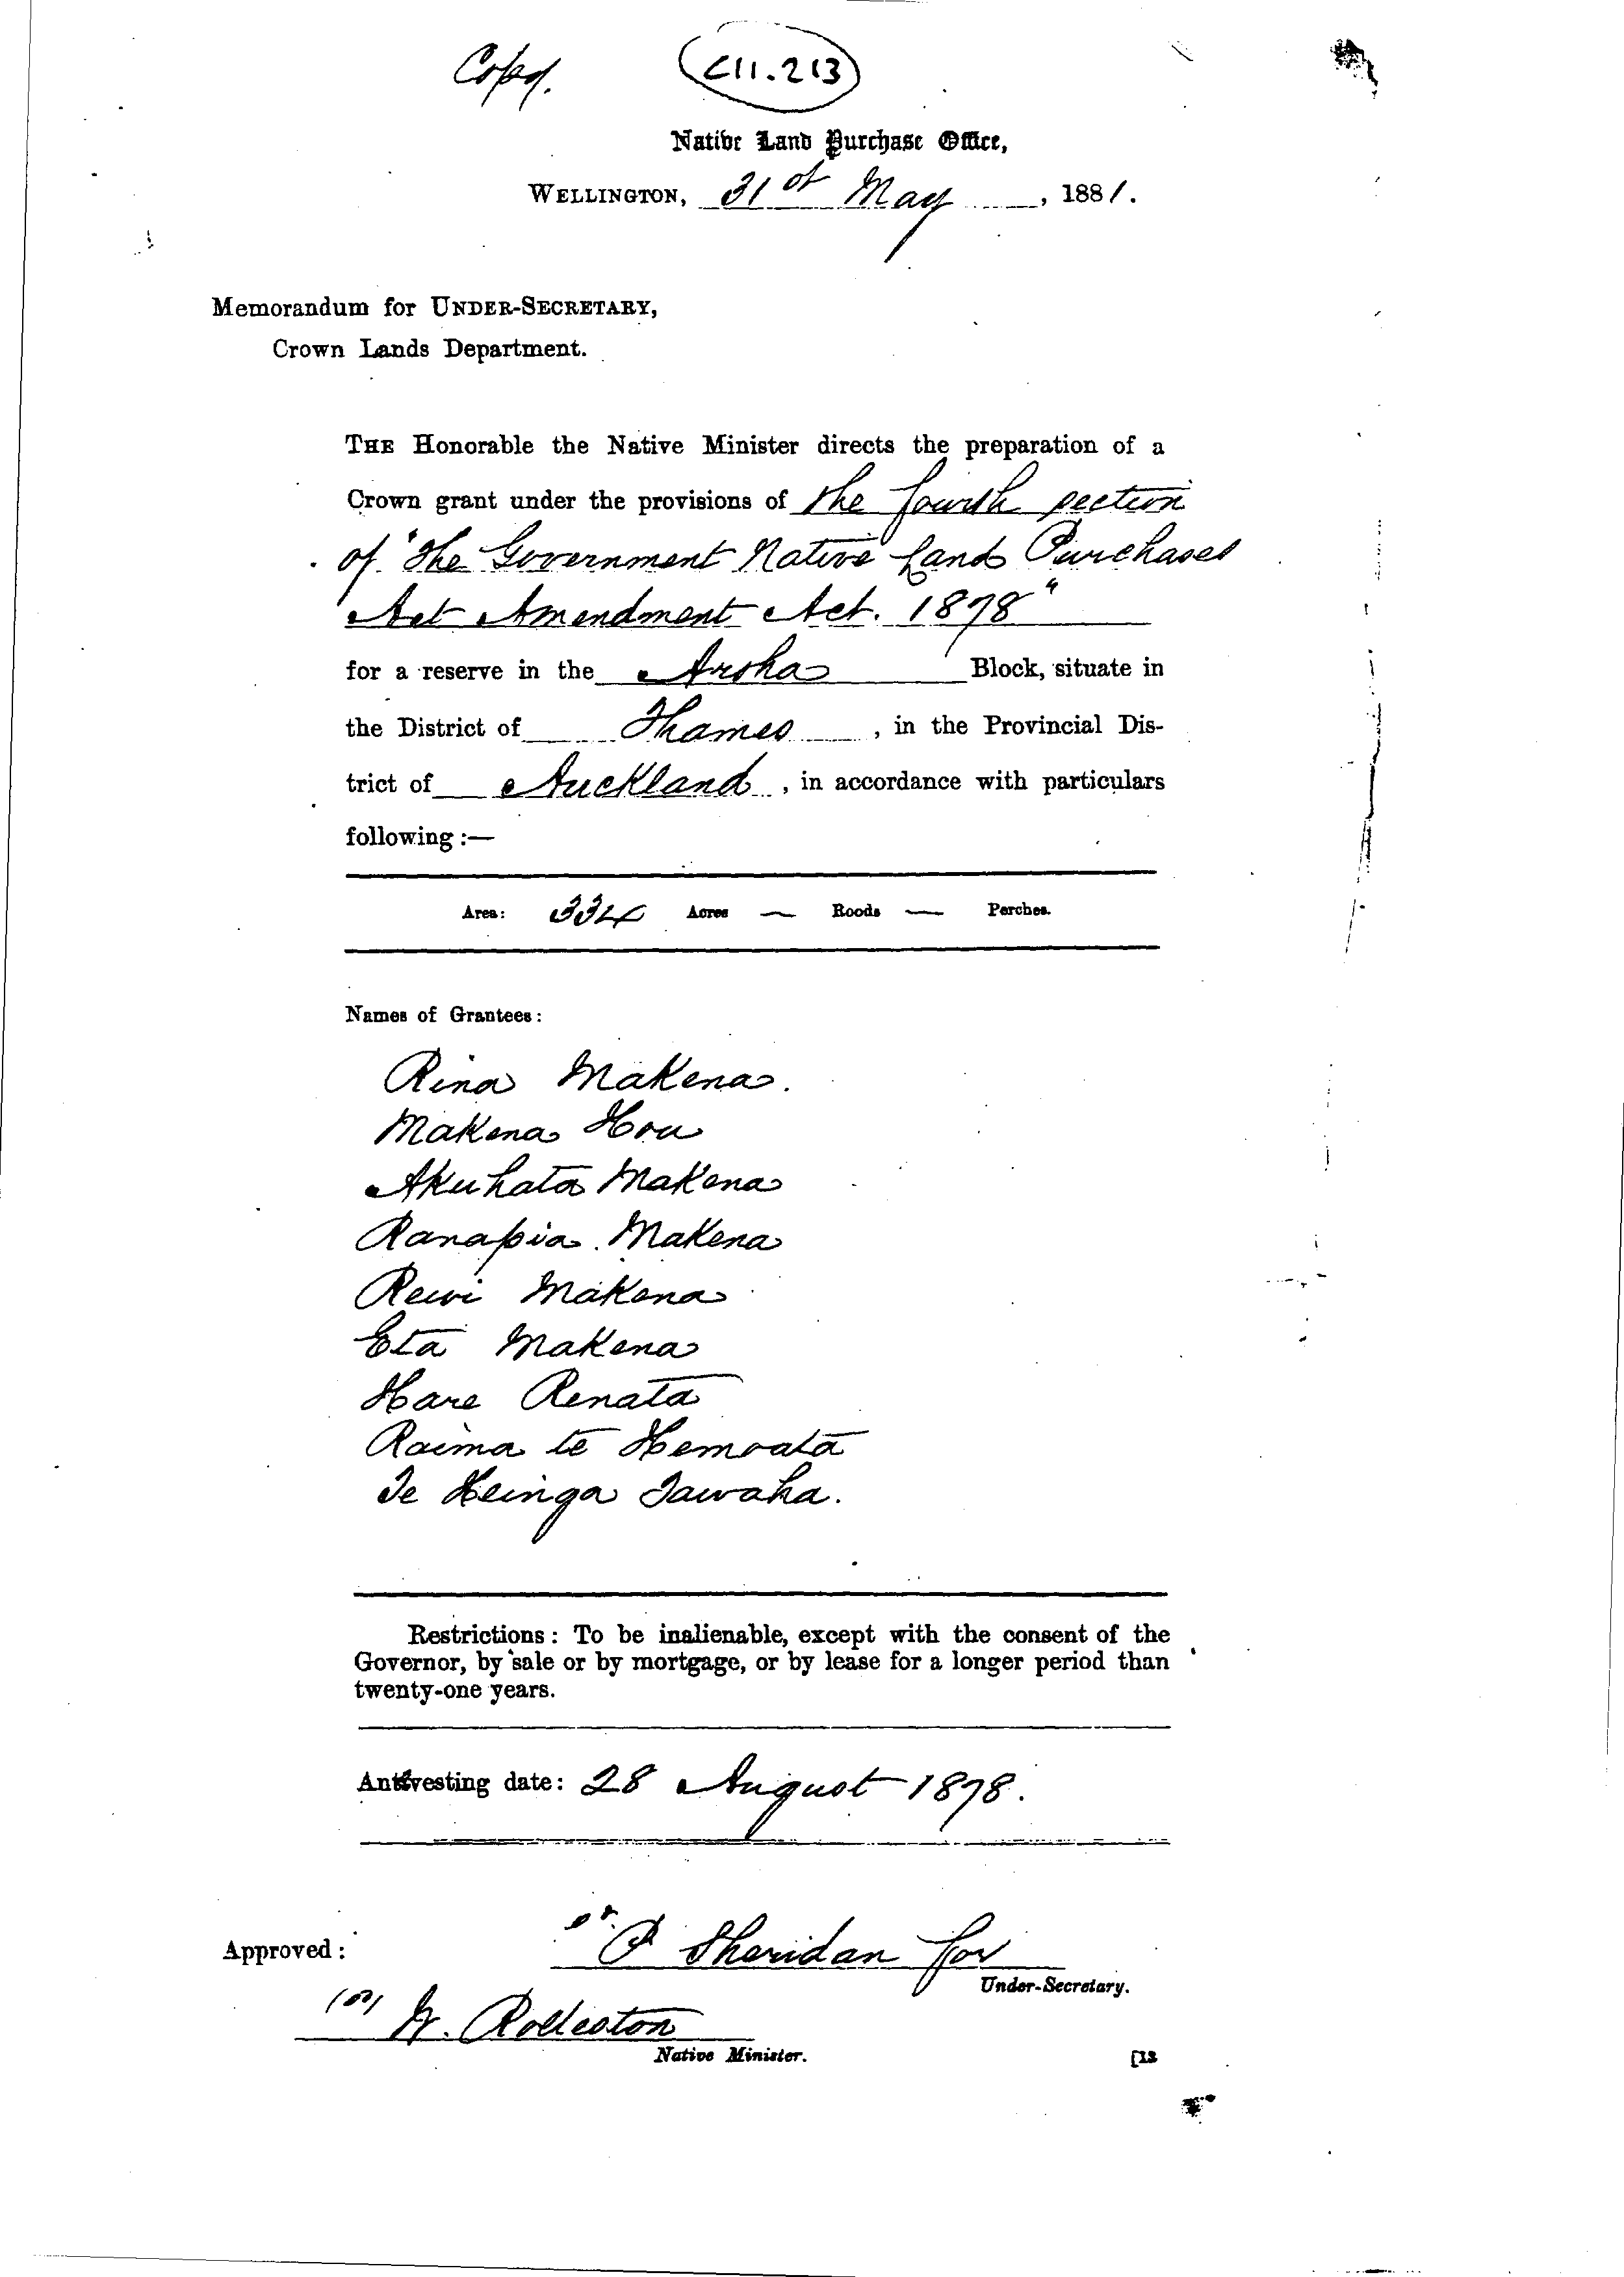 Copy.
C11.213
Native Land Purchase Office,
WELLINGTON, 31st May, 1881.
Memorandum for UNDER-SECRETARY,
Crown Lands Department.
THE Honorable the Native Minister directs the preparation of a
Crown grant under the provisions of the fourth section
of "The Government Native Land Purchases
Act Amendment Act. 1878"
for a reserve in the Aroha Block, situate in
the District of Thames, in the Provincial Dis-
trict of Auckland, in accordance with particulars
following :—
Area: 334 Acres — Roods — Perches.
Names of Grantees:
Rina Makena.
Makena Hou
Akuhata Makena
Ranapia Makena
Rewi Makena
Eta Makena
Hare Renata
Raima te Hemoata
Te Keinga Tawaha.
Restrictions: To be inalienable, except with the consent of the
Governor, by sale or by mortgage, or by lease for a longer period than
twenty-one years.
Antevesting date: 28 August 1878.
P Sheridan for
Approved:
Under-Secretary.
W. Rolleston
Native Minister.
[12